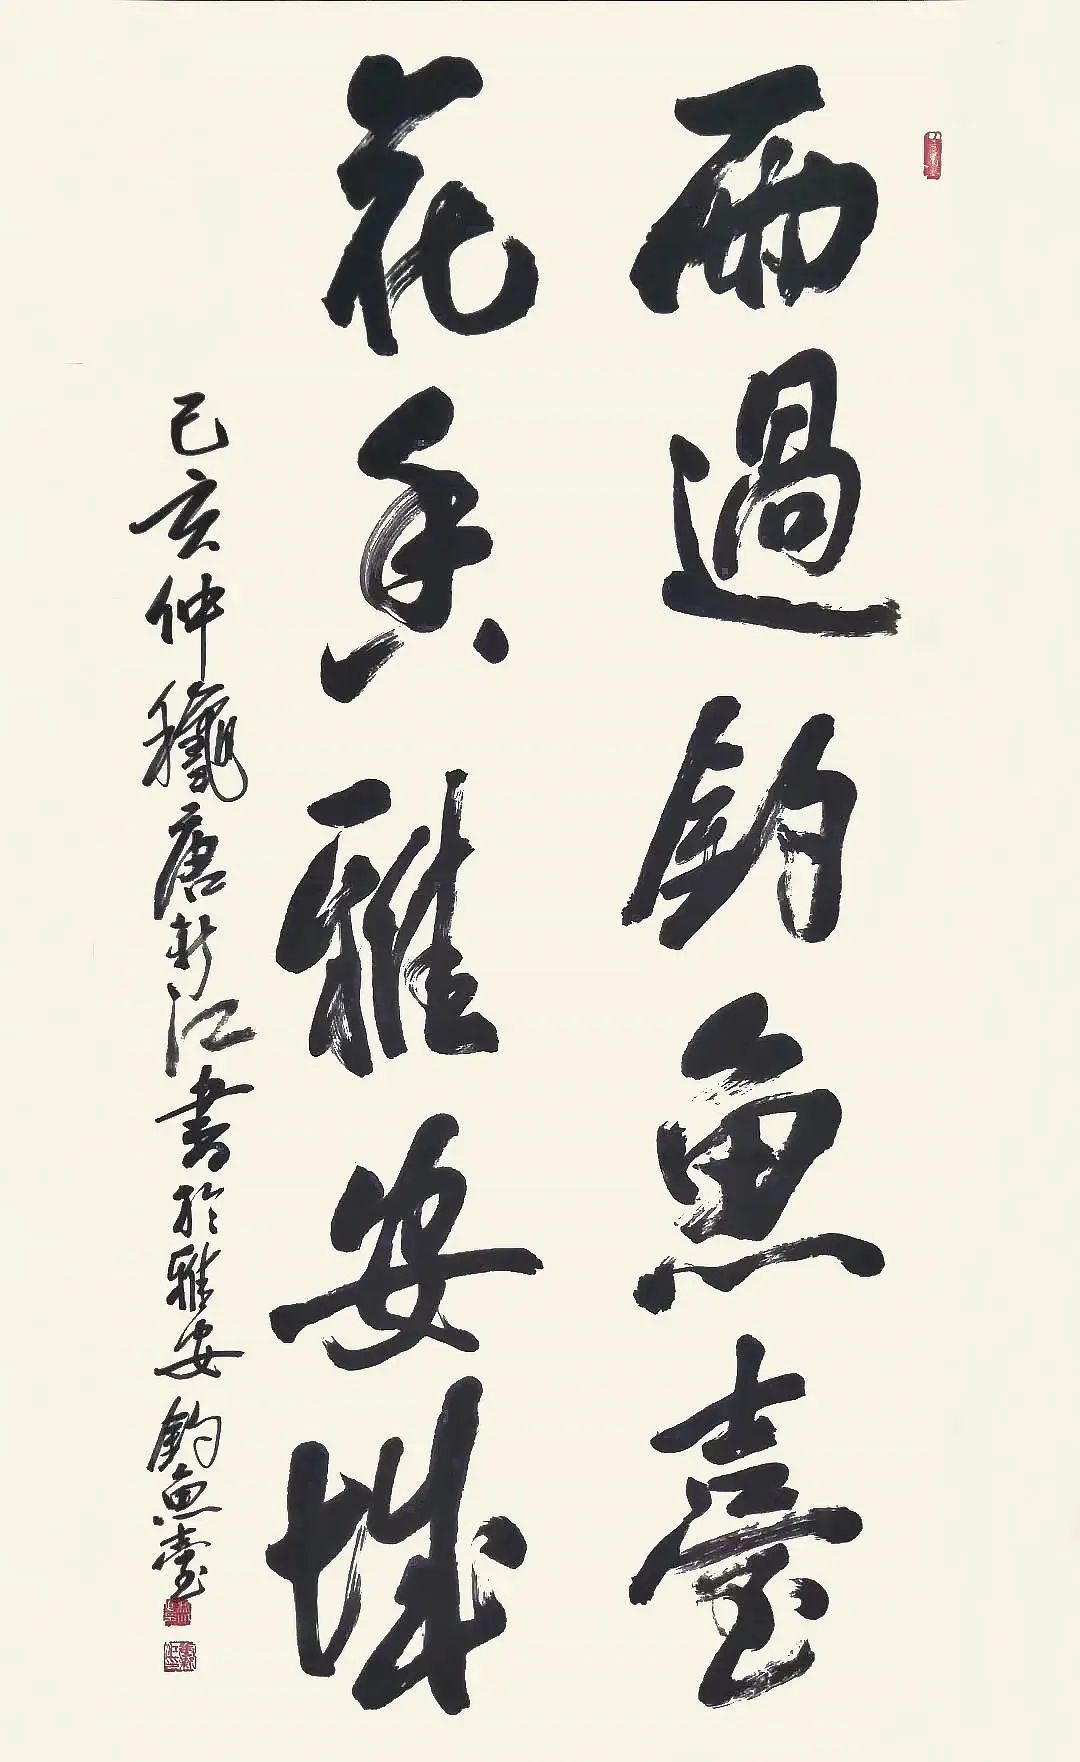 雨過釣魚臺
花香雅安城
己亥仲龝唐新江書於雅安釣魚臺